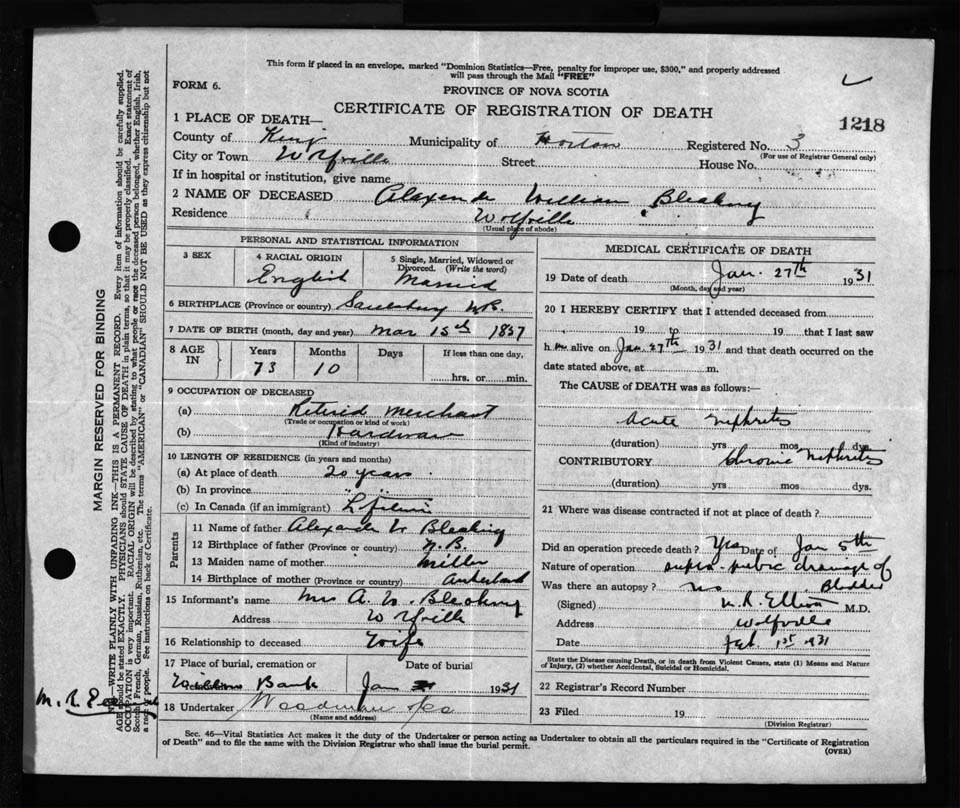 This form if placed in an envelope, marked "Dominion Statistics—Free, penalty for improper use, $300," and properly addressed
will pass through the Mail "FREE"
FORM 6.
PROVINCE OF NOVA SCOTIA
CERTIFICATE OF REGISTRATION OF DEATH
1218
1 PLACE OF DEATH—
County of Kings Municipality of Horton Registered No. 3
(For use of Registrar General only)
City or Town Wolfville Street House No.
If in hospital or institution, give name
2 NAME OF DECEASED Alexander William Bleakney
Residence Wolfville
(Usual place of abode)
PERSONAL AND STATISTICAL INFORMATION
3 SEX
4 RACIAL ORIGIN
English
5 Single, Married, Widowed or
Divorced. (Write the word)
Married
6 BIRTHPLACE (Province or country) N.B.
7 DATE OF BIRTH (month, day and year) Mar 15th 1857
8 AGE IN
Years Months Days If less than one day,
73 10 hrs. or min.
9 OCCUPATION OF DECEASED
(a) Retired Merchant
(Trade or occupation or kind of work)
(b) Hardware
(Kind of industry)
10 LENGTH OF RESIDENCE (in years and months)
(a) At place of death 20 years
(b) In province
(c) In Canada (if an immigrant) Lifetime
Parents
11 Name of father Alexander W. Bleakney
12 Birthplace of father (Province or country) N.B.
13 Maiden name of mother Miller
14 Birthplace of mother (Province or country)
15 Informant's name Mrs A. W. Bleakney
Address Wolfville
16 Relationship to deceased Wife
17 Place of burial, cremation or Date of burial
Willow Bank Jan 1931
18 Undertaker Woodman & Co
(Name and address)
MEDICAL CERTIFICATE OF DEATH
19 Date of death Jan. 27th 1931
(Month, day and year)
20 I HEREBY CERTIFY that I attended deceased from
19 to 19 that I last saw
him alive on Jan. 27th 1931 and that death occurred on the
date stated above, at m.
The CAUSE of DEATH was as follows:—
Acute Nephritis
(duration) yrs mos dys.
CONTRIBUTORY Chronic Nephritis
(duration) yrs mos. dys.
21 Where was disease contracted if not at place of death?
Did an operation precede death? Yes Date of Jan 5th
Nature of operation supra-pubic drainage of
Was there an autopsy? no Bladder
(Signed) M.R. Elliott M.D.
Address Wolfville
Date Feb. 1st 1931
State the Disease causing Death, or in death from Violent Causes, state (1) Means and Nature
of Injury, (2) whether Accidental, Suicidal or Homicidal.
22 Registrar's Record Number
23 Filed 19
(Division Registrar)
Sec. 46—Vital Statistics Act makes it the duty of the Undertaker or person acting as Undertaker to obtain all the particulars required in the "Certificate of Registration
of Death" and to file the same with the Division Registrar who shall issue the burial permit.
(OVER)
MARGIN RESERVED FOR BINDING
N.B.—WRITE PLAINLY WITH UNFADING INK—THIS IS A PERMANENT RECORD. Every item of information should be carefully supplied.
AGE should be stated EXACTLY. PHYSICIANS should STATE CAUSE OF DEATH in plain terms, so that it may be properly classified. Exact statement of
OCCUPATION is very important. RACIAL ORIGIN will be described by stating to what people or race the deceased person belonged, whether English, Irish,
Scotch, French, German, Russian, Ruthenian, etc. The terms "AMERICAN" or "CANADIAN" SHOULD NOT BE USED as they express citizenship but not
a race or people. See instructions on back of Certificate.
M. R.